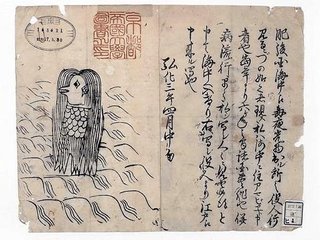 肥後国海中え毎夜光物出ル所之役人行
見るニづの如く者現ス私ハ海中ニ住アマビヱト申
者也当年より六ヶ年之間諸国豊作也併
病流行早々私ヲ写シ人々ニ見セ候得と
申て海中へ入けり右ハ写シ役人より江戸え
申来ル写也
弘化三年四月中旬
京都帝國大學圖書之印